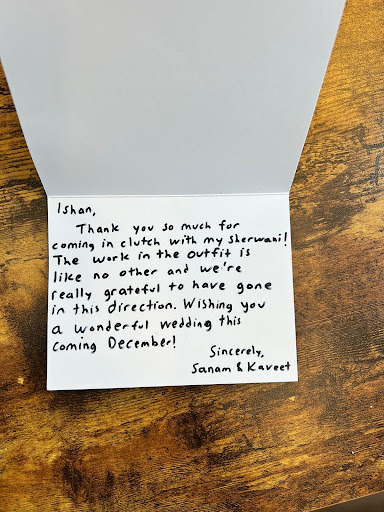 Ishan,
Thank you so much for
coming in clutch with my sherwani!
The work in the outfit is
like no other and we're
really grateful to have gone
in this direction. Wishing you
a wonderful wedding this
coming December!
Sincerely,
Sanam & Kaveet